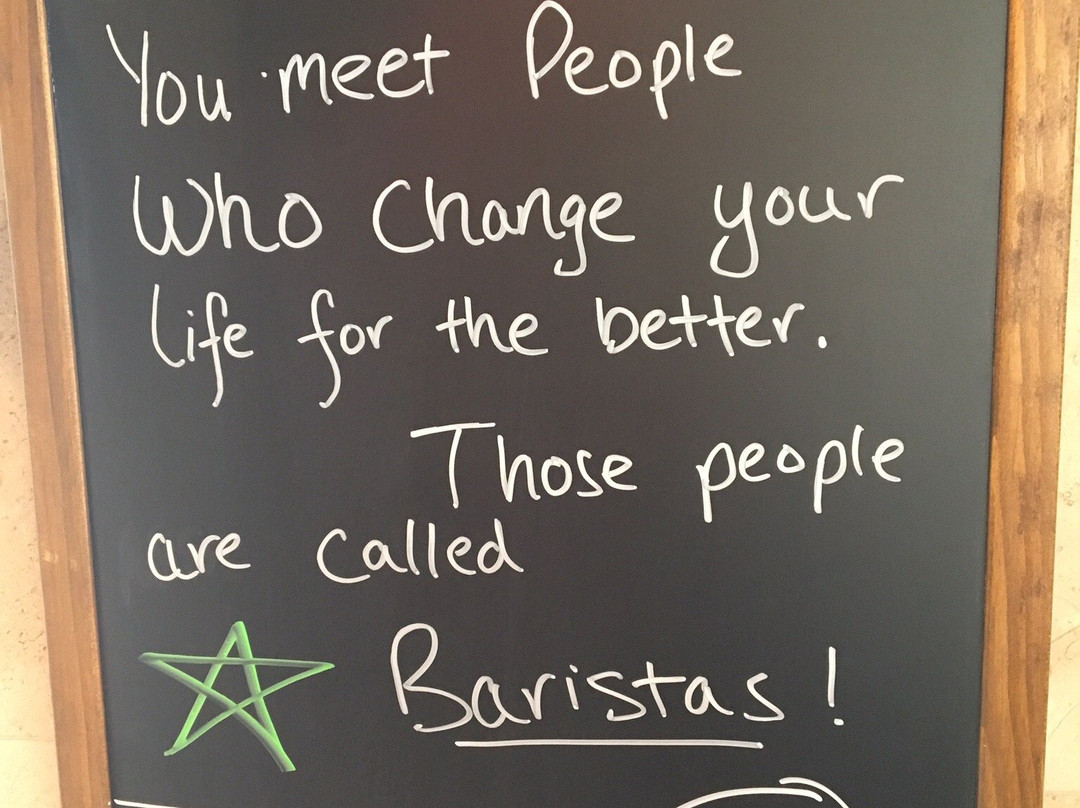 You meet People
Who Change your
life for the better.
Those people
are called
Baristas!